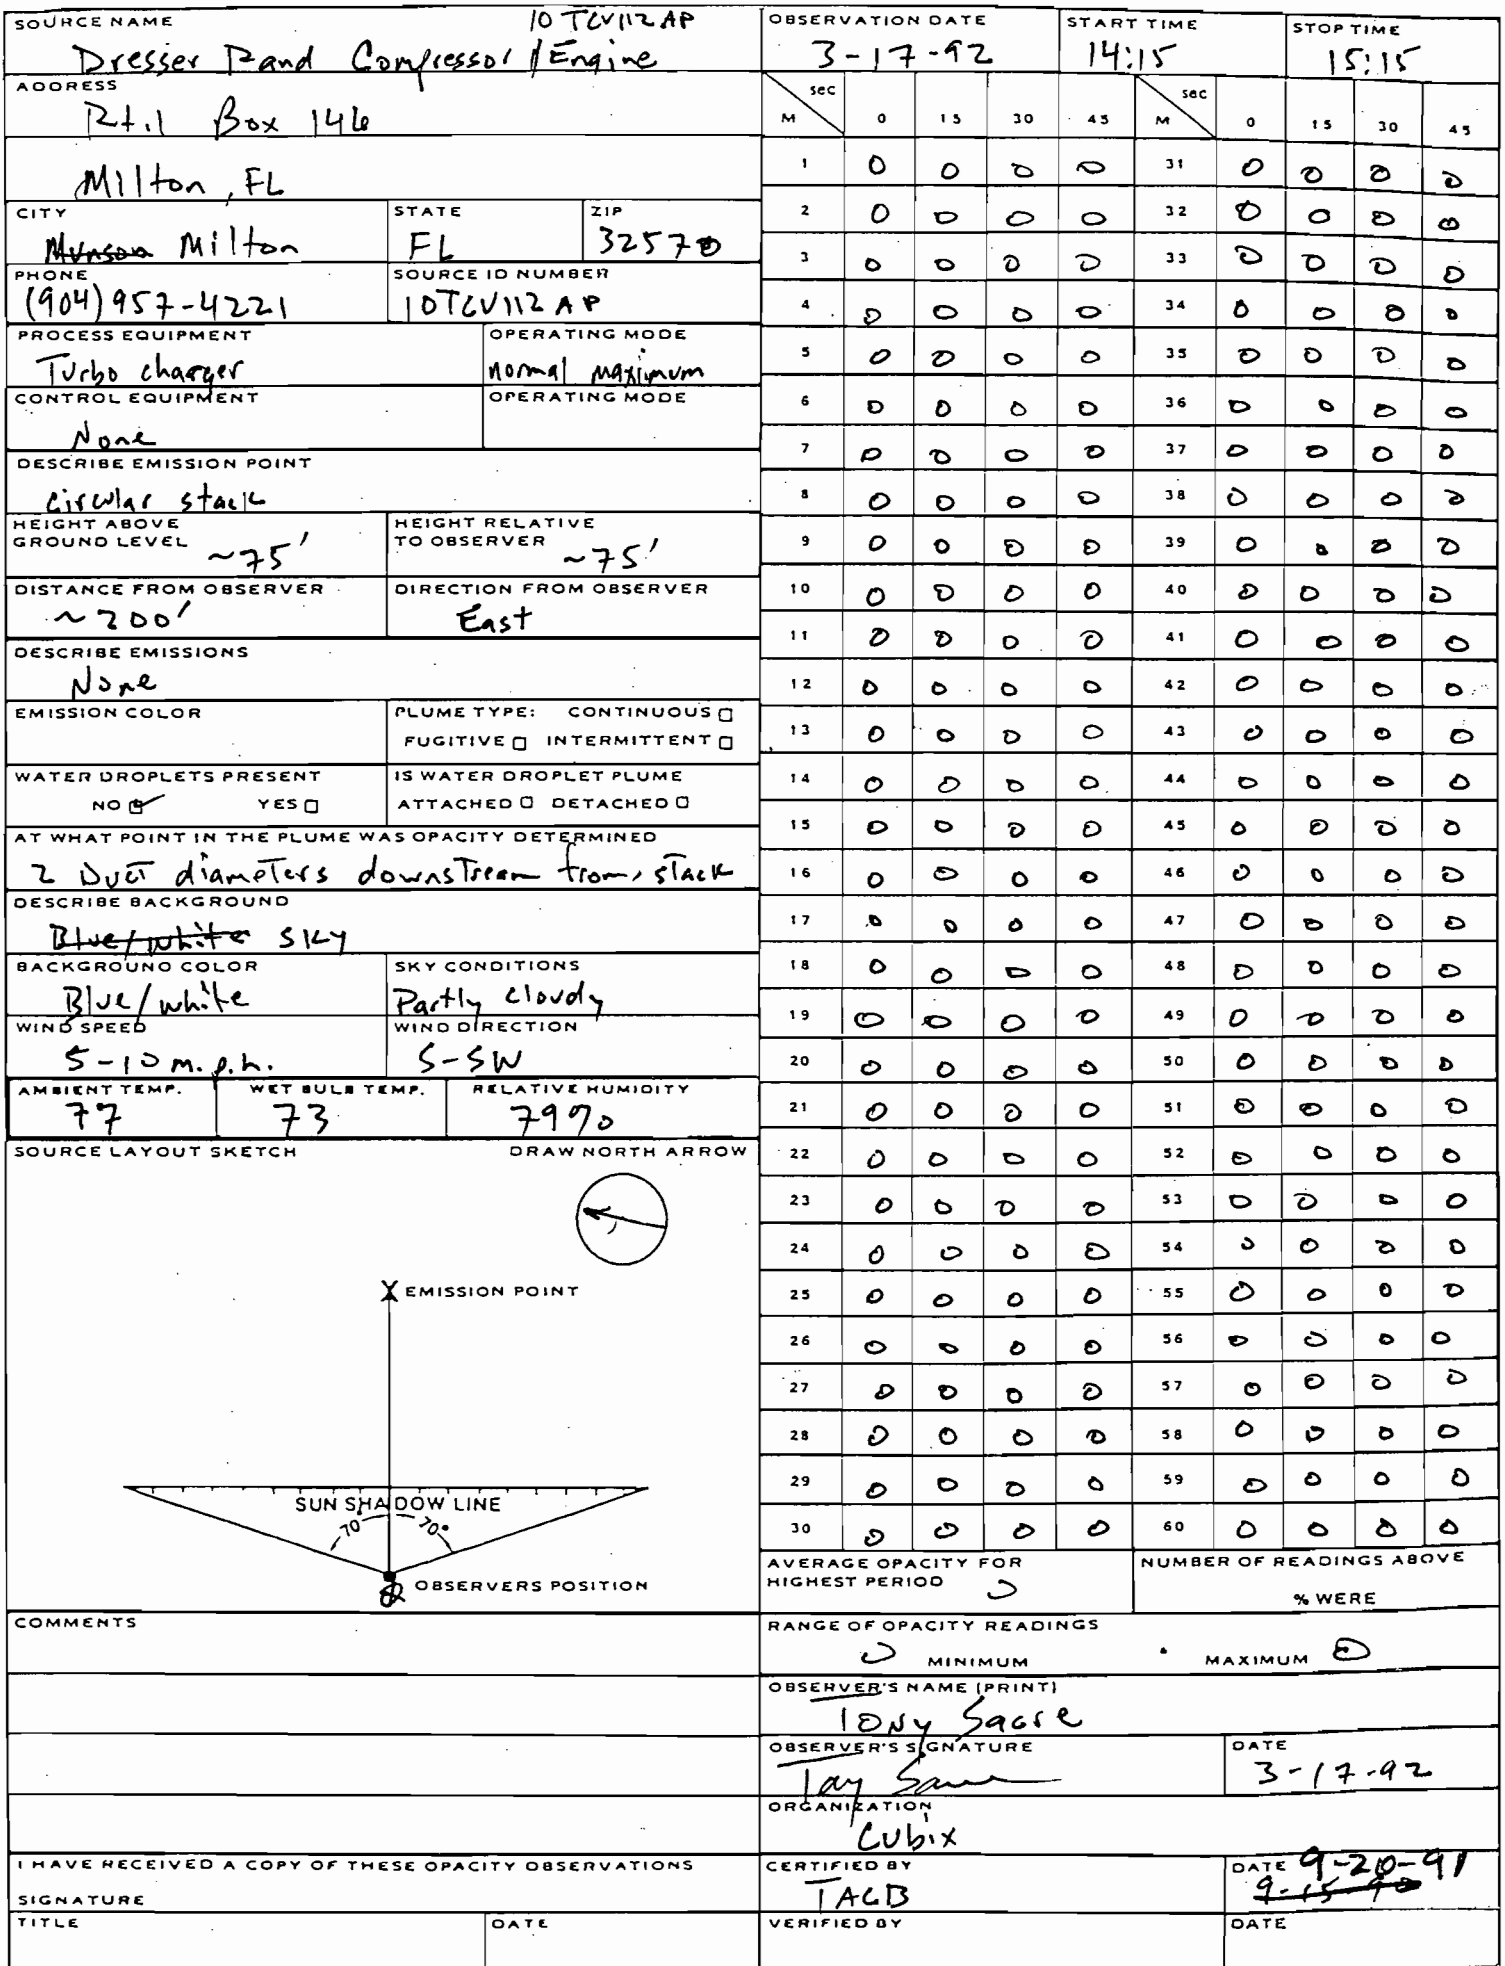 SOURCE NAME 10 TCV112 AP
Dresser Rand Compressor/Engine
ADDRESS
Rt.1 Box 146
Milton, FL
CITY STATE ZIP
Munson Milton FL 32570
PHONE SOURCE ID NUMBER
(904)957-4221 10TCV112 AP
PROCESS EQUIPMENT OPERATING MODE
Turbo charger normal maximum
CONTROL EQUIPMENT OPERATING MODE
None
DESCRIBE EMISSION POINT
circular stack
HEIGHT ABOVE GROUND LEVEL ~75' HEIGHT RELATIVE TO OBSERVER ~75'
DISTANCE FROM OBSERVER DIRECTION FROM OBSERVER
~200' East
DESCRIBE EMISSIONS
None
EMISSION COLOR PLUME TYPE: CONTINUOUS
FUGITIVE INTERMITTENT
WATER DROPLETS PRESENT IS WATER DROPLET PLUME
NO YES ATTACHED DETACHED
AT WHAT POINT IN THE PLUME WAS OPACITY DETERMINED
2 Duct diameters downstream from stack
DESCRIBE BACKGROUND
Blue/white sky
BACKGROUND COLOR SKY CONDITIONS
Blue/white Partly cloudy
WIND SPEED WIND DIRECTION
5-10 m.p.h. S-SW
AMBIENT TEMP. WET BULB TEMP. RELATIVE HUMIDITY
77 73 79%
SOURCE LAYOUT SKETCH DRAW NORTH ARROW
X EMISSION POINT
SUN SHADOW LINE
70° 70°
OBSERVERS POSITION
COMMENTS
I HAVE RECEIVED A COPY OF THESE OPACITY OBSERVATIONS
SIGNATURE
TITLE DATE
OBSERVATION DATE START TIME STOP TIME
3-17-92 14:15 15:15
M sec 0 15 30 45 M sec 0 15 30 45
1 0 0 0 0 31 0 0 0 0
2 0 0 0 0 32 0 0 0 0
3 0 0 0 0 33 0 0 0 0
4 0 0 0 0 34 0 0 0 0
5 0 0 0 0 35 0 0 0 0
6 0 0 0 0 36 0 0 0 0
7 0 0 0 0 37 0 0 0 0
8 0 0 0 0 38 0 0 0 0
9 0 0 0 0 39 0 0 0 0
10 0 0 0 0 40 0 0 0 0
11 0 0 0 0 41 0 0 0 0
12 0 0 0 0 42 0 0 0 0
13 0 0 0 0 43 0 0 0 0
14 0 0 0 0 44 0 0 0 0
15 0 0 0 0 45 0 0 0 0
16 0 0 0 0 46 0 0 0 0
17 0 0 0 0 47 0 0 0 0
18 0 0 0 0 48 0 0 0 0
19 0 0 0 0 49 0 0 0 0
20 0 0 0 0 50 0 0 0 0
21 0 0 0 0 51 0 0 0 0
22 0 0 0 0 52 0 0 0 0
23 0 0 0 0 53 0 0 0 0
24 0 0 0 0 54 0 0 0 0
25 0 0 0 0 55 0 0 0 0
26 0 0 0 0 56 0 0 0 0
27 0 0 0 0 57 0 0 0 0
28 0 0 0 0 58 0 0 0 0
29 0 0 0 0 59 0 0 0 0
30 0 0 0 0 60 0 0 0 0
AVERAGE OPACITY FOR HIGHEST PERIOD 0 NUMBER OF READINGS ABOVE
% WERE
RANGE OF OPACITY READINGS
0 MINIMUM MAXIMUM 0
OBSERVER'S NAME (PRINT)
Tony Sacre
OBSERVER'S SIGNATURE DATE
3-17-92
ORGANIZATION
Cubix
CERTIFIED BY DATE 9-20-91
TACB 9-15-90
VERIFIED BY DATE